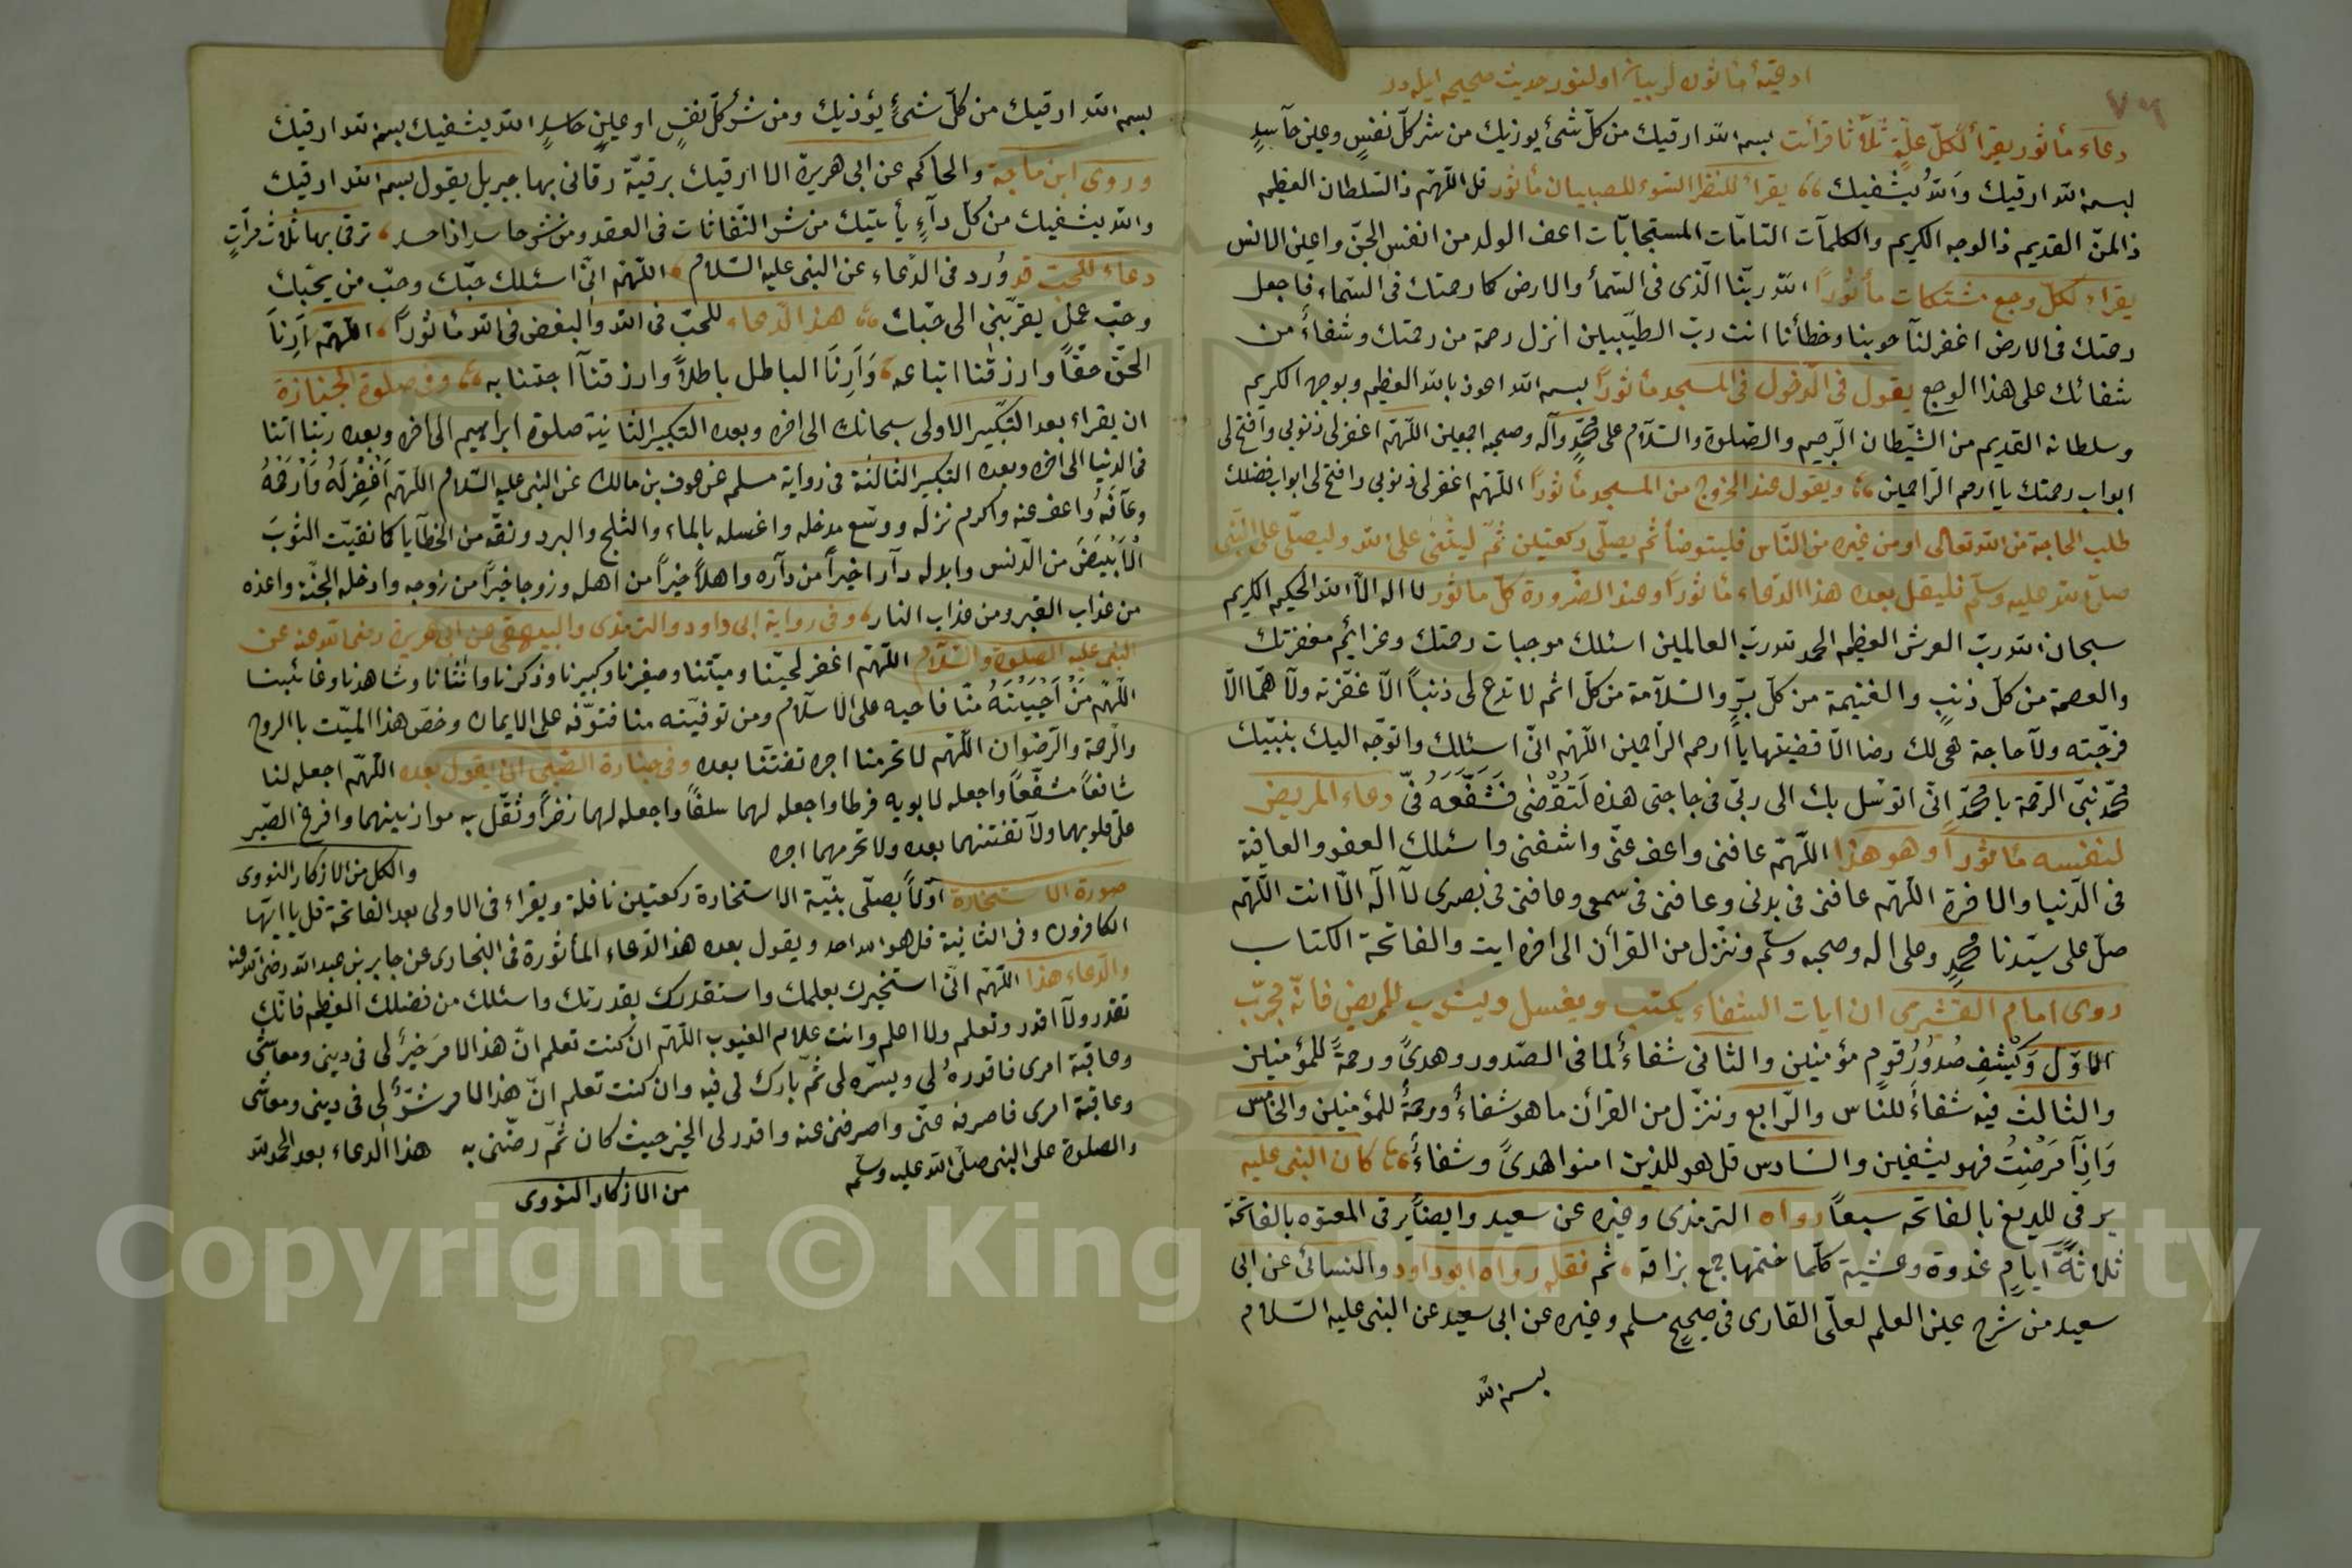 ادعية مأثوره لر بيان اولنور حديث صحيح ايله در
٧٩
دعاء مأثور يقرأ لكلّ علّةٍ ثلاثا قرأت بسم الله ارقيك من كلّ شئ يوزيك من شر كلّ نفسٍ وعين حآسدٍ
بسم الله ارقيك وَاللهُ يشفيك يقراء للنظر السّوء للصبيان مأثور قل اللّهمّ ذا السّلطان العظيم
ذا المنّ القديم ذا الوجه الكريم والكلمآت التامّات المستجابّات اعف الولد من انفس الجنّ واعين الانس
يقراء لكلّ وجع مشتكات مأثوراً الله ربّنا الّذى فى السّمأ والارض كما رحمتك فى السّماء فاجعل
رحمتك فى الارض اغفر لنآ حوبنا وخطأنا انت ربّ الطيّبيين انزل رحمة من رحمتك وشفاءً من
شفائك على هذا الوجع يقول فى الدّخول فى المسجد مأثوراً بسم الله اعوذ بالله العظيم وبوجهه الكريم
وسلطانه القديم من الشّيطان الرّجيم والصّلوة والسّلام على محمّدٍ وآله وصحبه اجمعين اللّهمّ اغفر لى ذنوبى وافتح لى
ابواب رحمتك يا ارحم الرّاحمين ويقول عند الخروج من المسجد مأثوراً اللّهمّ اغفر لى ذنوبى وافتح لى ابواب فضلك
طلب الحاجة من الله تعالى او من غيره من النّاس فليتوضأ ثم يصلّى ركعتين ثمّ ليثنى على الله وليصلّى على النّبى
صلى الله عليه وسلّم فليقل بعده هذا الدّعاء مأثوراً وعند الضّرورة كلّ مأثور لا اله الاّ الله الحكيم الكريم
سبحان الله ربّ العرش العظيم الحمد لله ربّ العالمين اسئلك موجبات رحمتك وعزائم مغفرتك
والعصمة من كلّ ذنبٍ والغنيمة من كلّ برٍّ والسّلآمة من كلّ اثم لا تدع لى ذنباً الاّ غفرته ولآ همّا الاّ
فرجّته ولآ حاجة هى لك رضا الاّ قضيتها يا ارحم الرّاحمين اللّهمّ انّى اسئلك واتوجّه اليك بنبيّك
محمّد نبىّ الرحمة يا محمّد انّى اتوسّل بك الى ربّى فى حاجتى هذه لَتُقْضٰى فَشَفّعَهُ فىّ دعاء المريض
لنفسه مأثوراً وهو هذا اللّهمّ عافنى واعف عنّى واشفنى واسئلك العفو والعافية
فى الدّنيا والاخرة اللّهمّ عافنى فى بدنى وعافنى فى سمعى وعافنى فى بصرى لآ اله الاّ انت اللّهمّ
صلّ على سيّدنا محمّدٍ وعلى اله وصحبه وسلّم وننزل من القرأن الى اخره ايت والفاتحة الكتاب
روى امام القشرى ان ايات الشفاء يكتب ويغسل ويشرب للمريض فانّه مجرّب
الاوّل وَيَشْفِ صُدُورُ قومٍ مؤمنين والثانى شفاءٌ لما فى الصّدور وهدىً ورحمةً للمؤمنين
والثالث فيه شفاءٌ للنّاس والرّابع وننزّل من القرأن ما هو شفاءٌ ورحمةٌ للمؤمنين والخامس
وَاِذَآ مَرَضْتُ فهو يشفين والسّادس قل هو للذين امنوا هدىً وشفاءٌ كان النبى عليه
يرقى للديغ بالفاتحه سبعاً رواه الترمذى وغيره عن سعيد وايضاً يرقى المعتوه بالفاتحة
ثلاثةَ ايامٍ غدوة وعشية كلّما ختمها جمع بزاقه ثم تفله رواه ابو داود والنسائى عن ابى
سعيد من شرح عين العلم لعلّى القارى فى صحيح مسلم وغيره عن ابى سعيد عن النبى عليه السّلام
بسم الله
بسم الله ارقيك من كلّ شئٍ يؤذيك ومن شرّ كلّ نفسٍ او عينٍ حاسدٍ الله يشفيك بسم الله ارقيك
وروى ابن ماجة والحاكم عن ابى هريرة الا ارقيك برقيّة رقانى بها جبريل يقول بسم الله ارقيك
والله يشفيك من كلّ دآءٍ يأتيك من شر النّفاثات فى العقد ومن شر حاسد اذا حسد ترقى بها ثلاث مرّاتٍ
دعاء للمحبت قد وُرد فى الدّعاء عن النبى عليه السّلام اللّهمّ انّى اسئلك حبّك وحبّ من يحبّك
وحبّ عملٍ يقرّبنى الى حبّك هذا الدّعاء للحبّ فى الله والبغض فى الله مأثوراً اللّهمّ اَرِنَا
الحقّ حقّاً وارزقنا اتباعه وَاَرِنَا الباطل باطلاً وارزقنآ اجتنابه وفى صلوة الجنازة
ان يقراء بعد التّكبير الاولى سبحانك الى اخره وبعده التكبير الثانية صلوة ابراهيم الى اخره وبعده ربنا اتنا
فى الدنيا الى اخره وبعده التكبير الثالثة فى رواية مسلم عن عوف بن مالك عن النبى عليه السّلام اللّهمّ اَغْفِرْ لَهُ وَاَرْحَمْهُ
وعآفه واعف عنه واكرم نزله ووسّع مدخله واغسله بالماء والثلج والبرد ونقّه من الخطآيا كما نقيّت الثوبَ
الْاَبْيَضَ من الدّنس وابدله دآرا خيراً من دآره واهلاً خيراً من اهله وزوجا خيراً من زوجه وادخله الجنّة واعذه
من عذاب القبر ومن عذاب النار وفى رواية ابى داود والترمذى والبيهقى عن ابى هريرة رضى الله عنه عن
النبى عليه الصلوة والسّلآم اللّهمّ اغفر لحيّنا وميّتنا وصغيرنا وكبيرنا وذكرنا وانثانا وشاهدنا وغائبنا
اللّهمّ مَنْ اَحْيَيْتَهُ مِنّا فاحيه على الاسلآم ومن توفيّته منا فتوّفه على الايمان وخصّ هذا الميّت بالروح
والرّحمة والرّضوان اللّهمّ لا تحرمنا اجره تفتنّا بعده وفى جنازة الصّبى ان يقول بعده اللّهمّ اجعله لنا
شافعاً مشفّعاً واجعله لابويه فرطا واجعله لهما سلفاً واجعله لهما ذخراً وثقّل به موازينهما وافرغ الصّبر
على قلوبهما ولآ تفتنهما بعده ولا تحرمهما اجره
والكل من الازكار النووى
صورة الاستخارة اوّلاً يصلّى بنيّة الاستخارة ركعتين نافلة ويقراء فى الاولى بعد الفاتحة قل يا ايّها
الكافرون وفى الثانية قل هو الله احد ويقول بعده هذا الدّعاء المأثورة فى البخارى عن جابر بن عبد الله رضى الله عنه
والدّعاء هذا اللّهمّ انّى استخيرك بعلمك واستقدرك بقدرتك واسئلك من فضلك العظيم فانّك
تقدر ولآ اقدر وتعلم ولا اعلم وانت علام الغيوب اللّهمّ ان كنت تعلم انّ هذا الامرَ خيرٌ لى فى دينى ومعاشى
وعاقبة امرى فاقدرهُ لى ويسّره لى ثمّ بارك لى فيه وان كنت تعلم انّ هذا الامر شرٌّ لى فى دينى ومعاشى
وعاقبة امرى فاصرفه عنّى واصرفنى عنه واقدر لى الخير حيث كان ثمّ رضّنى به هذا الدعاء بعد الحمد لله
والصلوة على النبى صلى الله عليه وسلّم
من الازكار النووى
Copyright © King Saud University